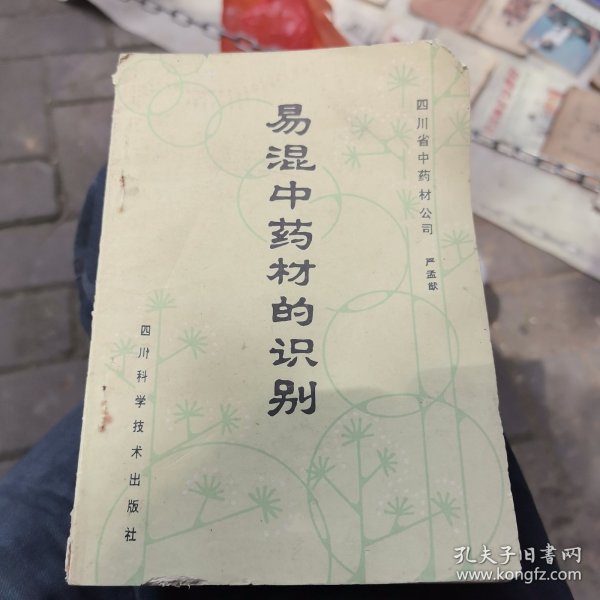 四川省中药材公司 严孟猷
易混中药材的识别
四川科学技术出版社
孔夫子旧书网
www.kongfz.com